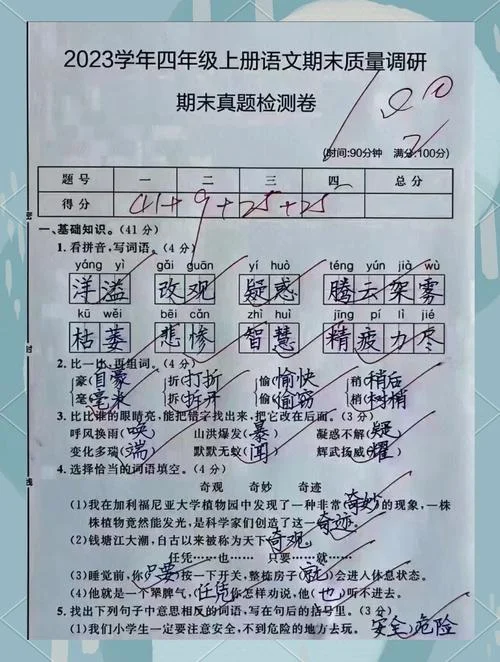 2023学年四年级上册语文期末质量调研
期末真题检测卷
(时间:90分钟 满分:100分)
题号 一 二 三 四 总分
得分 41+9+25+25
一、基础知识。(41分)
1.看拼音,写词语。(4分)
yáng yì gǎi guān yí huò téng yún jià wù
洋溢 改观 疑惑 腾云驾雾
kū wěi bēi cǎn zhì huì jīng pí lì jié
枯萎 悲惨 智慧 精疲力尽
2.比一比,再组词。(4分)
豪(自豪 折(打折 愉(愉快 稍(稍后
毫(毫米 拆(拆开 偷(偷窃 梢(树梢
3.比比谁的眼睛亮,能把错字找出来,把它改在后面。(3分)
呼风换雨(唤) 山洪爆发(暴) 凝惑不解(疑)
变化多瑞(端) 默默无蚊(闻) 辉武扬威(耀)
4.选择恰当的词语填空。(4分)
奇观 奇妙 奇迹
(1)我在加利福尼亚大学植物园中发现了一种非常(奇妙)的现象,一株
株植物竟然能发光,是科学家们创造了这一奇迹。
(2)钱塘江大潮,自古以来被称为天下奇观。
任凭……也…… 只要……就……
(3)睡觉前,你(只要)按一下开关,整栋房子(就)会进入休息状态。
(4)他就是一个犟脾气,(任凭)你怎样劝说,他(也)听不进去。
5.找出下列句子中意思相反的词语,写在句后的括号里。(3分)
(1)我们小学生一定要注意安全,不到危险的地方去玩。(安全)(危险)